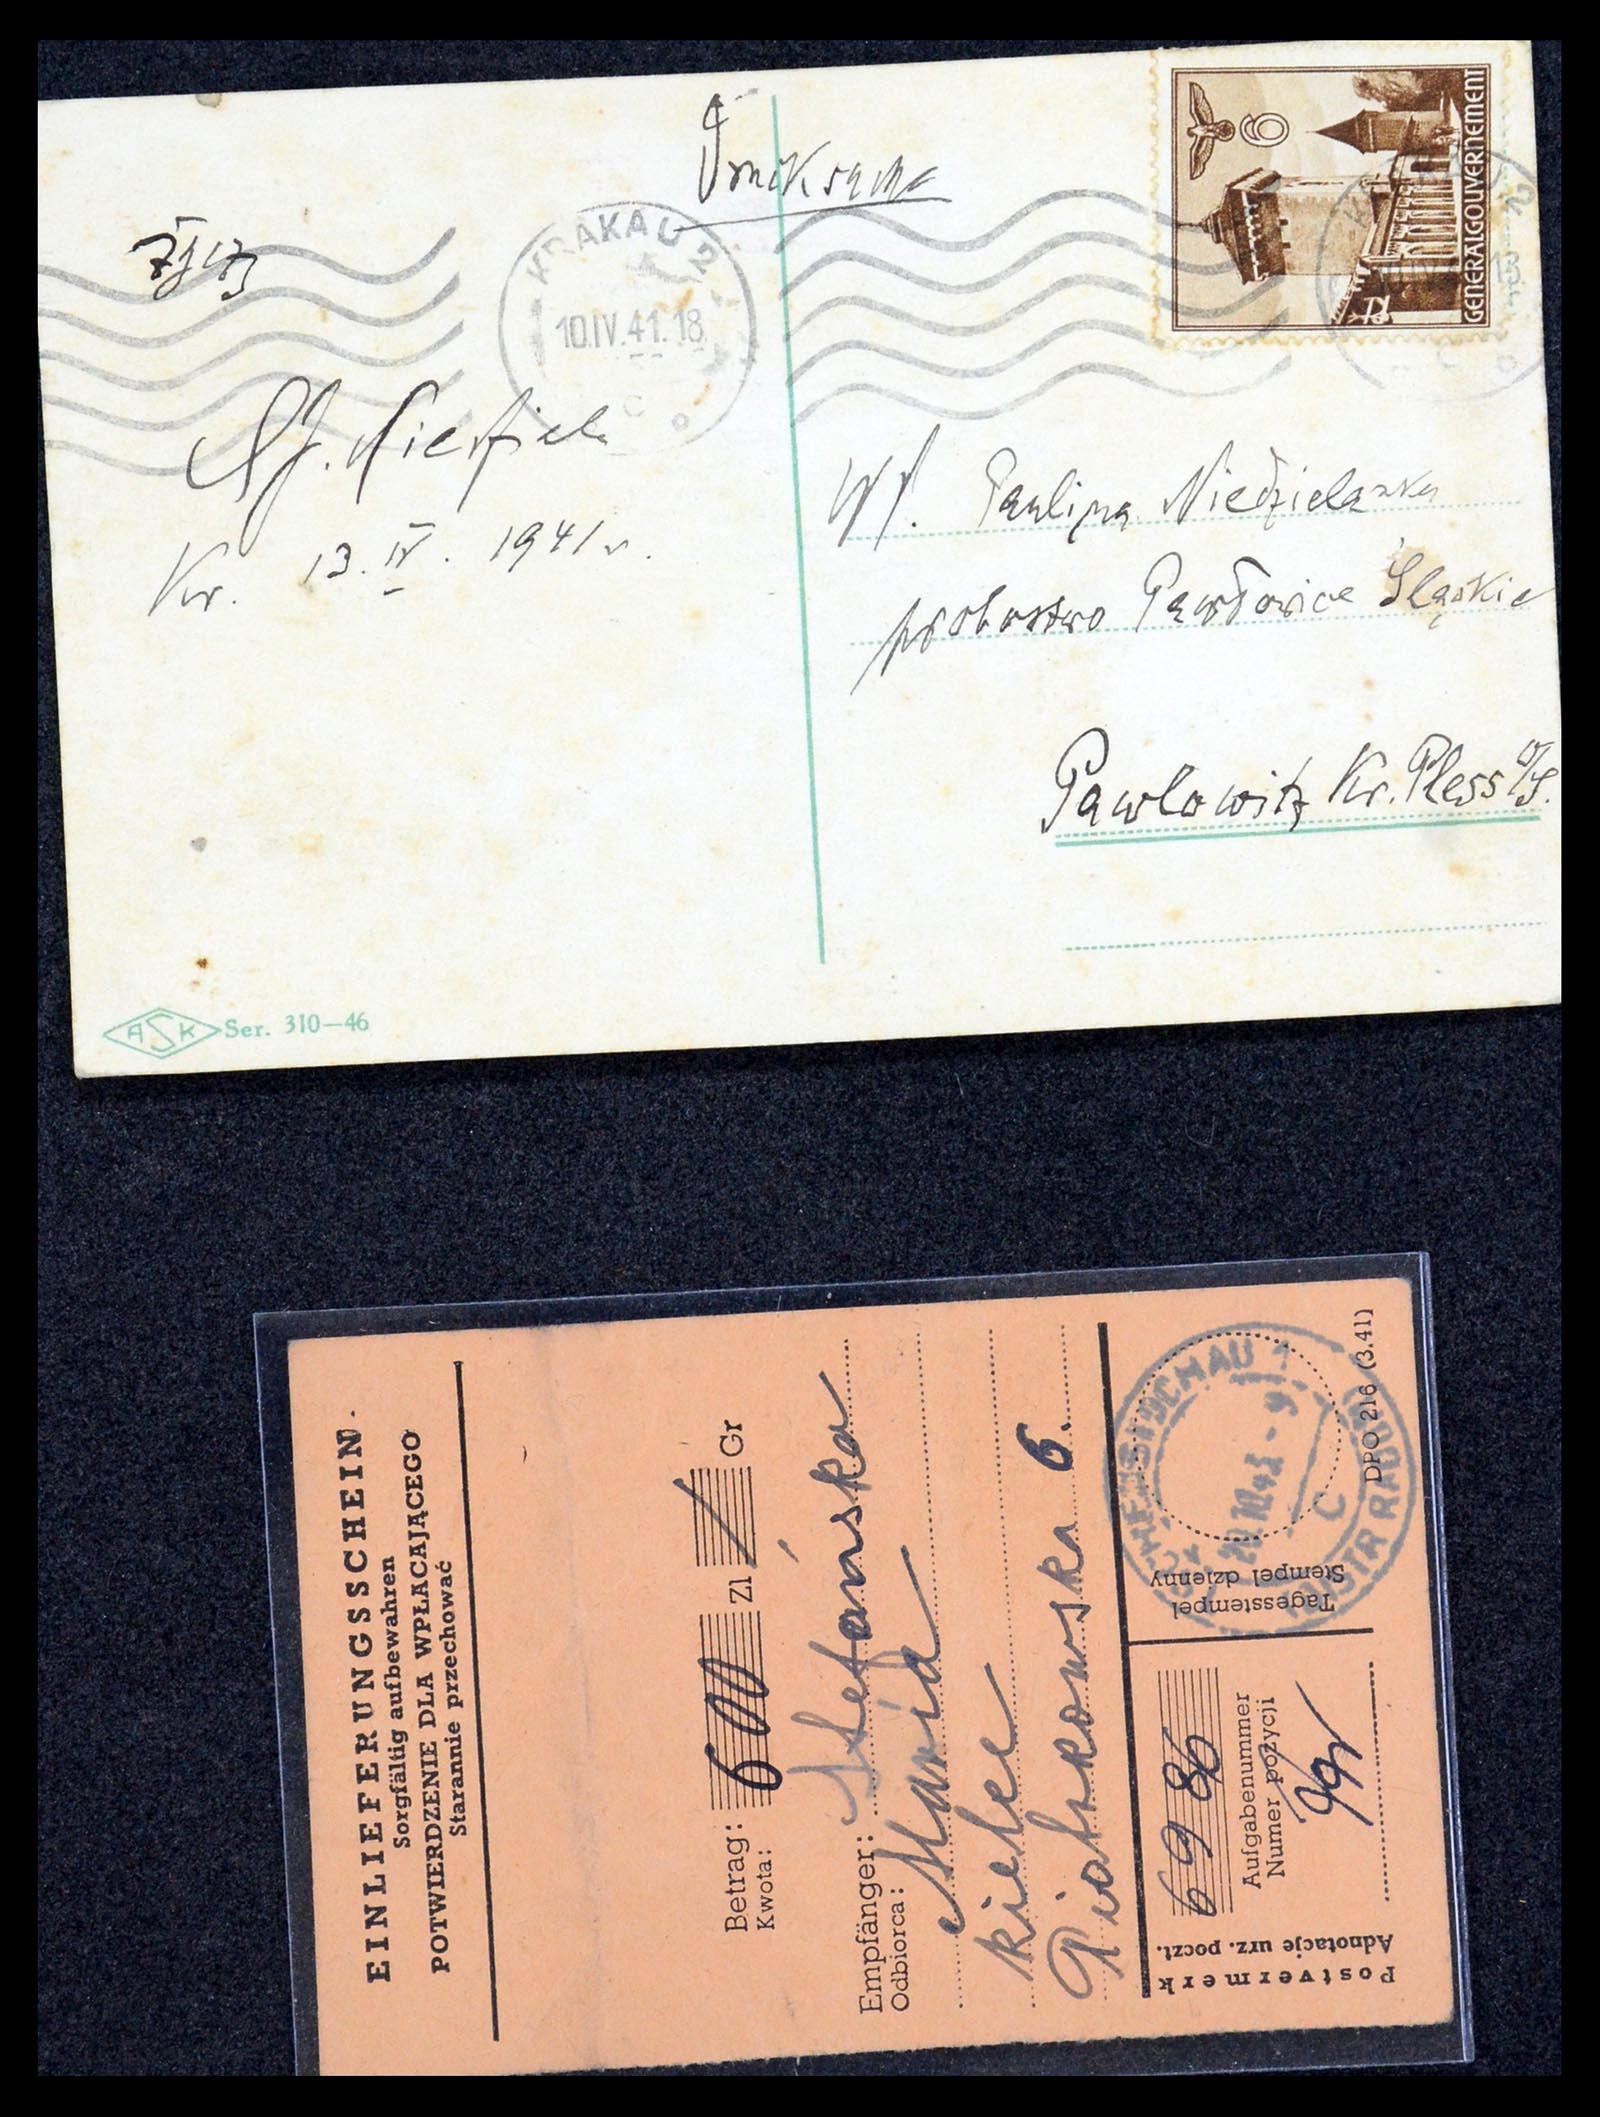 Drucksache
KRAKAU 2
10.IV.41.18
c
6
GENERALGOUVERNEMENT
Kr. 13. IV. 1941 r.
Wp. Paulina Niedzielanka
probostwo Pawłowice Śląskie
Pawlowitz Kr. Pless O/S.
ASK Ser. 310—46
EINLIEFERUNGSSCHEIN
Sorgfältig aufbewahren
POTWIERDZENIE DLA WPŁACAJĄCEGO
Starannie przechować
Betrag: 600 Zl / Gr
Kwota:
Empfänger: Stefańska
Odbiorca:
Maria
Kielce
Piotrkowska 6.
Postvermerk
Adnotacje urz. poczt.
6986
Aufgabenummer
Numer pozycji
Tagesstempel
Stempel dzienny
C
(DISTR RADOM)
DPO 216 (3.41)